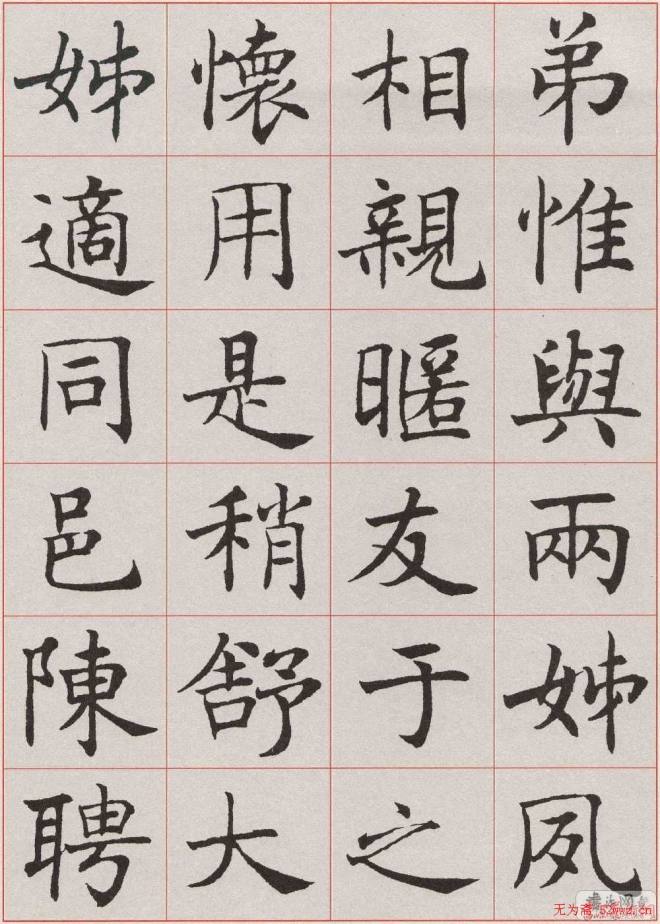 弟惟與兩姊夙
相親暱友于之
懷用是稍舒大
姊適同邑陳聘
无为斋.52wwz.cn